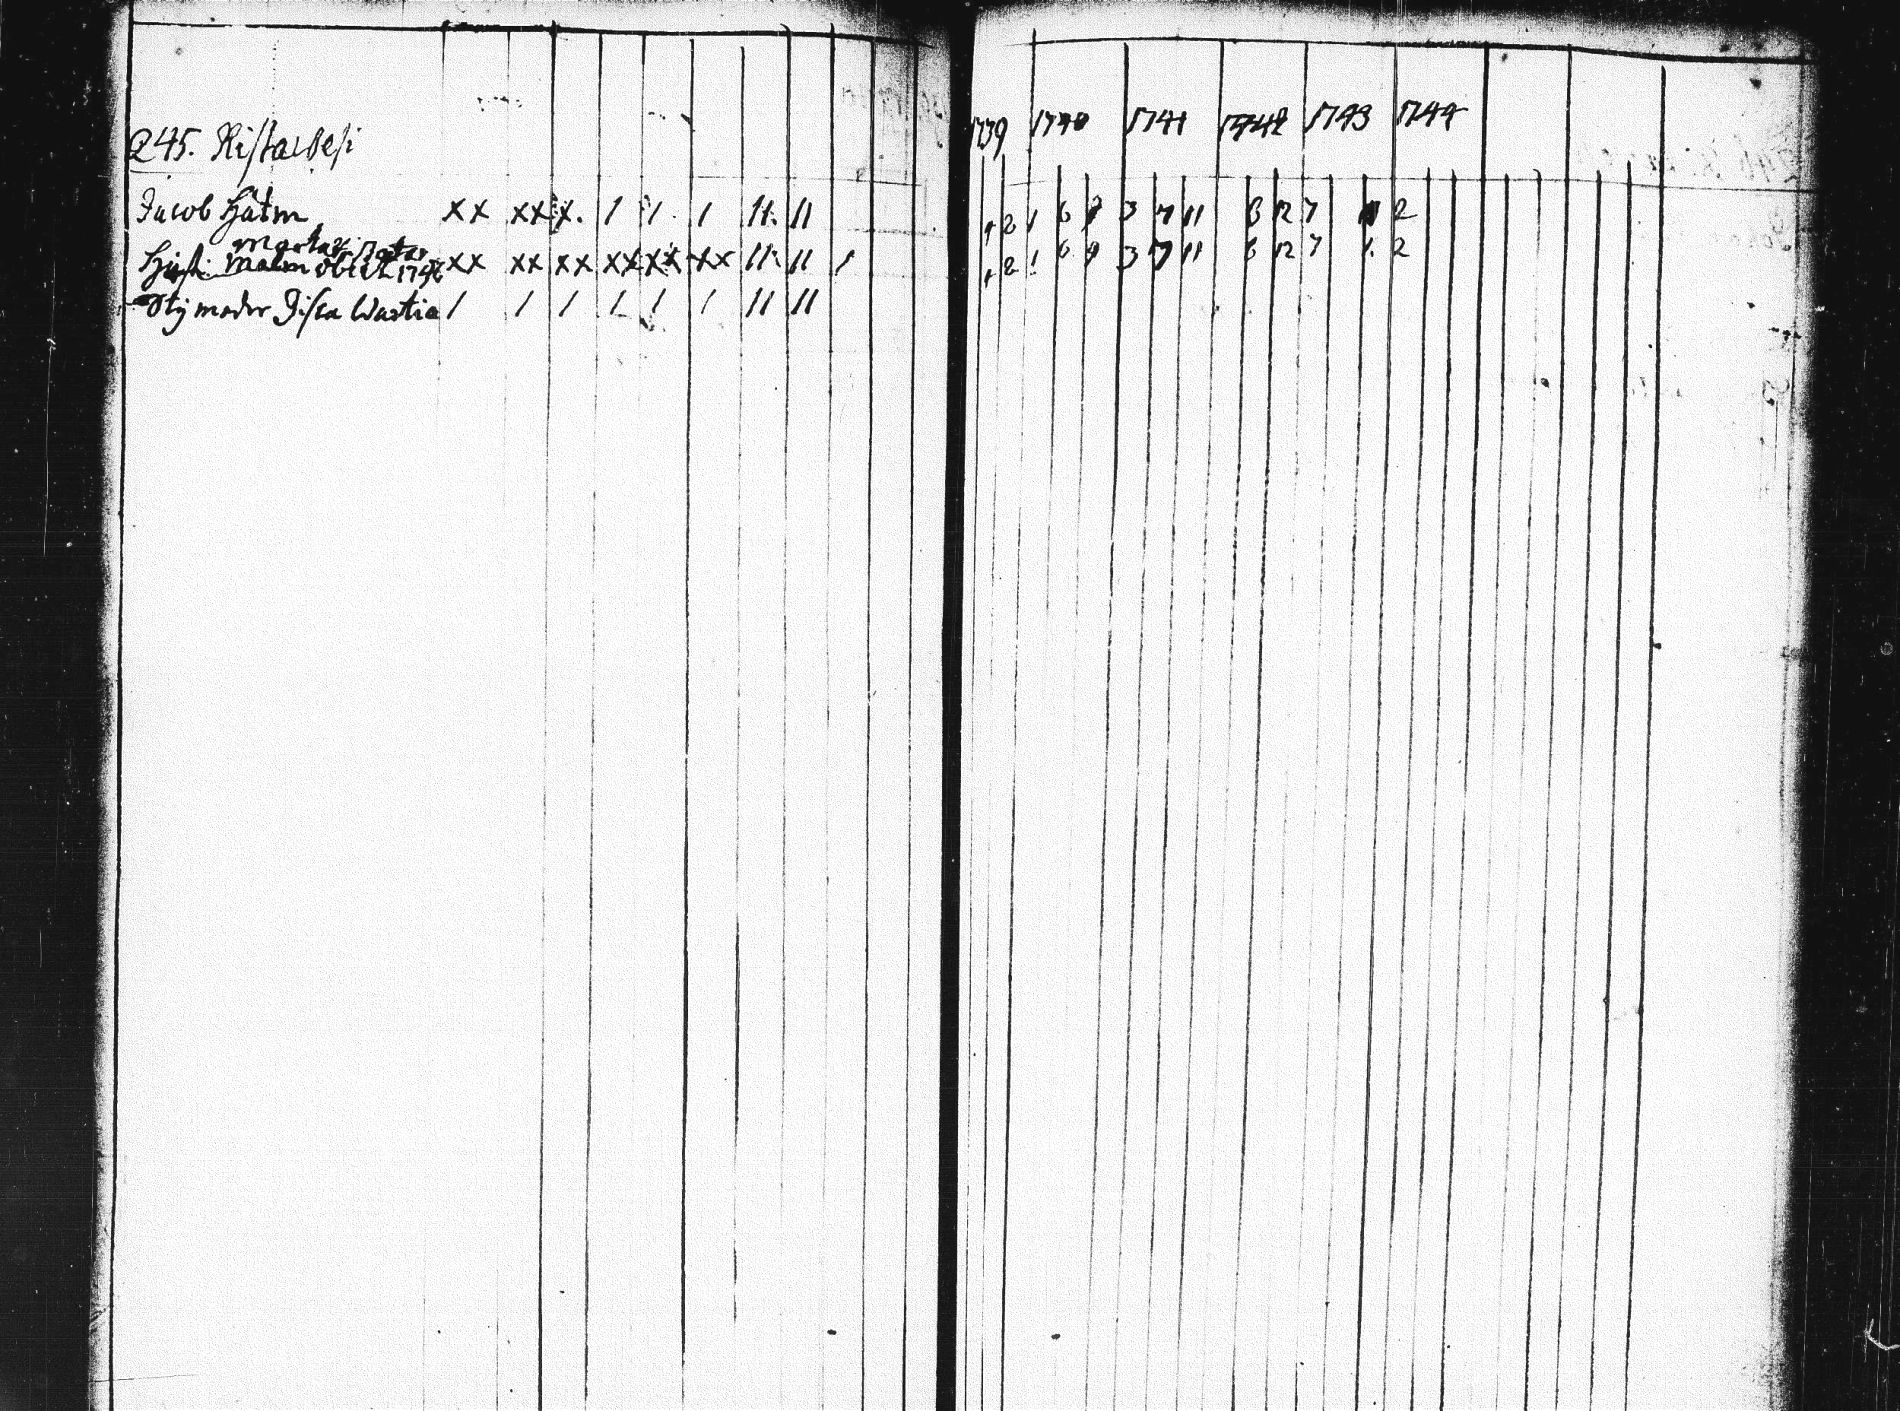 245. Ristawesi
1739 1740 1741 1742 1743 1744
Jacob Hätm xx xx x. 1 1. 1 11. 11
4 2 1 6 9 3 7 11 6 12 7 2
xx xx xx xx xx xx 11. 11 1
Malm obiit 1746
4 2 1 6 9 3 7 11 6 12 7 1. 2
Stymoder Lisa Wartia 1 1 1 1 1 1 11 11